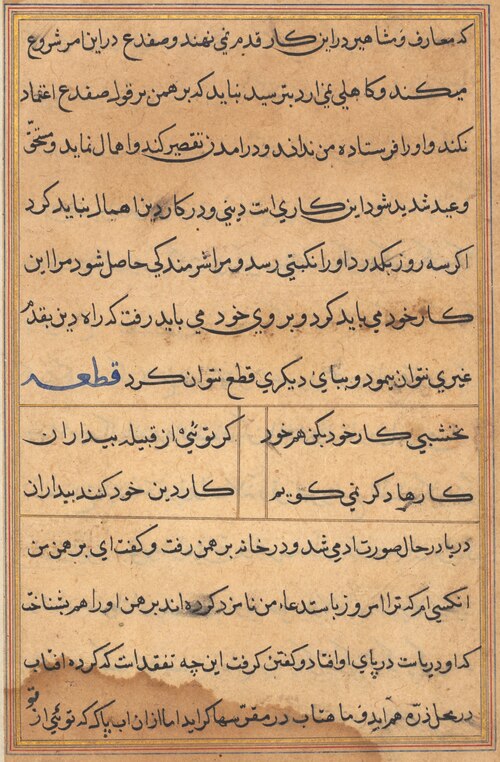 که معارف و مشاهیر دراین کار قدم نمی نهند و صفدع دراین امر شروع
میکند و کاهلی نمی ارد بترسید نباید که برهمن بر قول صفدع اعتماد
نکند و او را فرستاده من نداند و درامدن تقصیر کند و اهمال نماید و مستحق
وعید شدید شود این کاری است دینی و در کار دین اهمال نباید کرد
اکر سه روز بکدرد او را نکبتی رسد و مرا شرمندکی حاصل شود مرا این
کار خود می باید کرد و بر وی خود می باید رفت که راه دین بقدم
غیری نتوان پیمود و بپای دیکری قطع نتوان کرد قطعه
نخشبی کار خود بکن هم خود کر توئی از قبیله بیداران
کارها دکر نمی کویم کار دین خود کنند بیداران
دریا در حال صورت ادمی شد و در خانه برهمن رفت و کفت ای برهمن من
انکسی ام که ترا امروز باستدعاء من نامزد کرده اند برهمن او را هم بشناخت
که او دریاست در پای او افتاد و کفتن کرفت این چه تفقد است که کرده افتاب
در محل ذره هم اید و ماهتاب در مقر سها کراید اما ازان اب پاک که توئی از تو